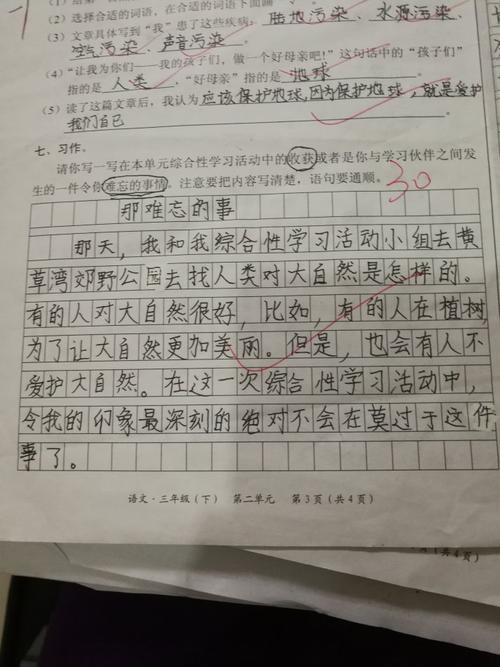 (2) 选择合适的词语,在合适的词语下面画
陆地污染、水源污染、
(3) 文章具体写到“我”患了这些疾病:
空气污染、声音污染。
(4) “让我为你们——我的孩子们,做一个好母亲吧!”这句话中的“孩子们”
指的是 人类 ,“好母亲”指的是 地球
(5) 读了这篇文章后,我认为 应该保护地球,因为保护地球,就是爱护
我们自己
七、习作。
请你写一写在本单元综合性学习活动中的收获或者是你与学习伙伴之间发
生的一件令你难忘的事情。注意要把内容写清楚,语句要通顺。
30
那难忘的事
那天,我和我综合性学习活动小组去黄
草湾郊野公园去找人类对大自然是怎样的。
有的人对大自然很好,比如,有的人在植树,
为了让大自然更加美丽。但是,也会有人不
爱护大自然。在这一次综合性学习活动中,
令我的印象最深刻的绝对不会在莫过于这件
事了。
语文·三年级(下) 第二单元 第3页(共4页)
(共4页)